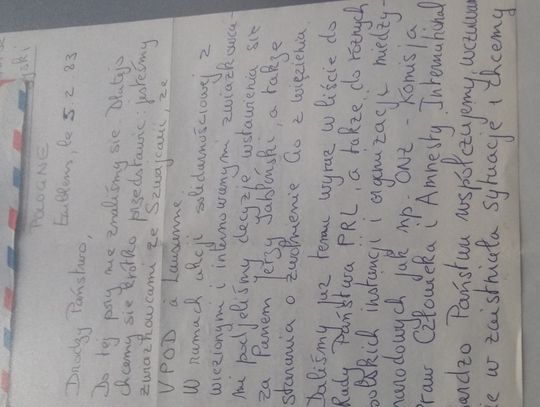 POLOGNE
Ecublens, le 5.2.83
Drodzy Państwo,
Do tej pory nie znaliśmy się. Dlatego
chcemy się krótko przedstawić: jesteśmy
związkowcami ze Szwajcarii, ze
VPOD à Lausanne.
W ramach akcji solidarnościowej z
więzionymi i internowanymi związkowca-
mi podjęliśmy decyzję wstawienia się
za Panem Jerzy Jabłoński, a także
starania o zwolnienie Go z więzienia.
Daliśmy już temu wyraz w liście do
Rady Państwa PRL, a także do różnych
polskich instancji i organizacji między-
narodowych jak np. ONZ - Komisja
Praw Człowieka i Amnesty International
ardzo Państwu współczujemy,
ie w zaistniałą sytuację i chcemy